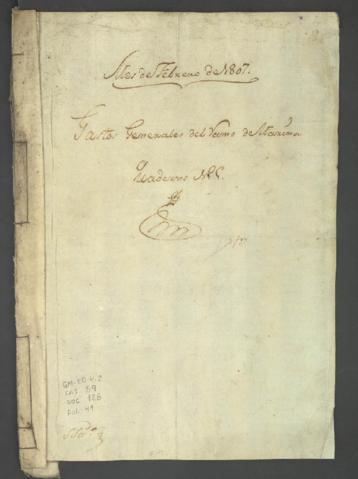 Mes de Febrero de 1807.
Gastos Generales del Ramo de Marina
Quaderno
GM-ED-4.2
CAJ. 59
DOC. 128
Fol. 41